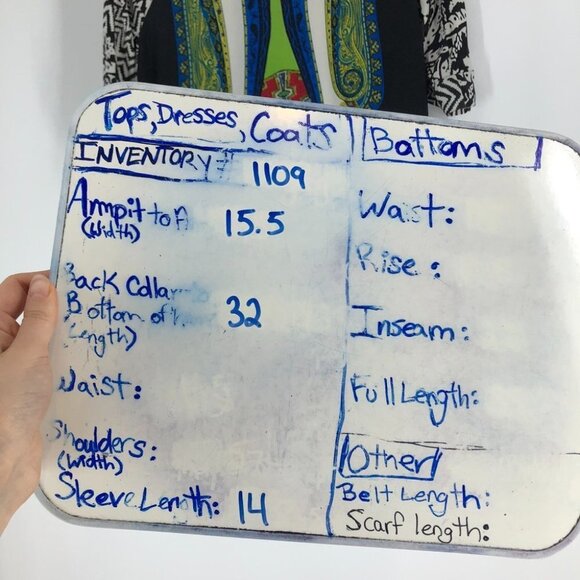 Tops, Dresses, Coats
INVENTORY # 1109
Armpit to A 15.5
(Width)
Back Colla
Bottom of 32
Length)
Waist:
Shoulders:
(Width)
Sleeve Length: 14
Bottoms
Waist:
Rise:
Inseam:
Full Length:
Other
Belt Length:
Scarf length: